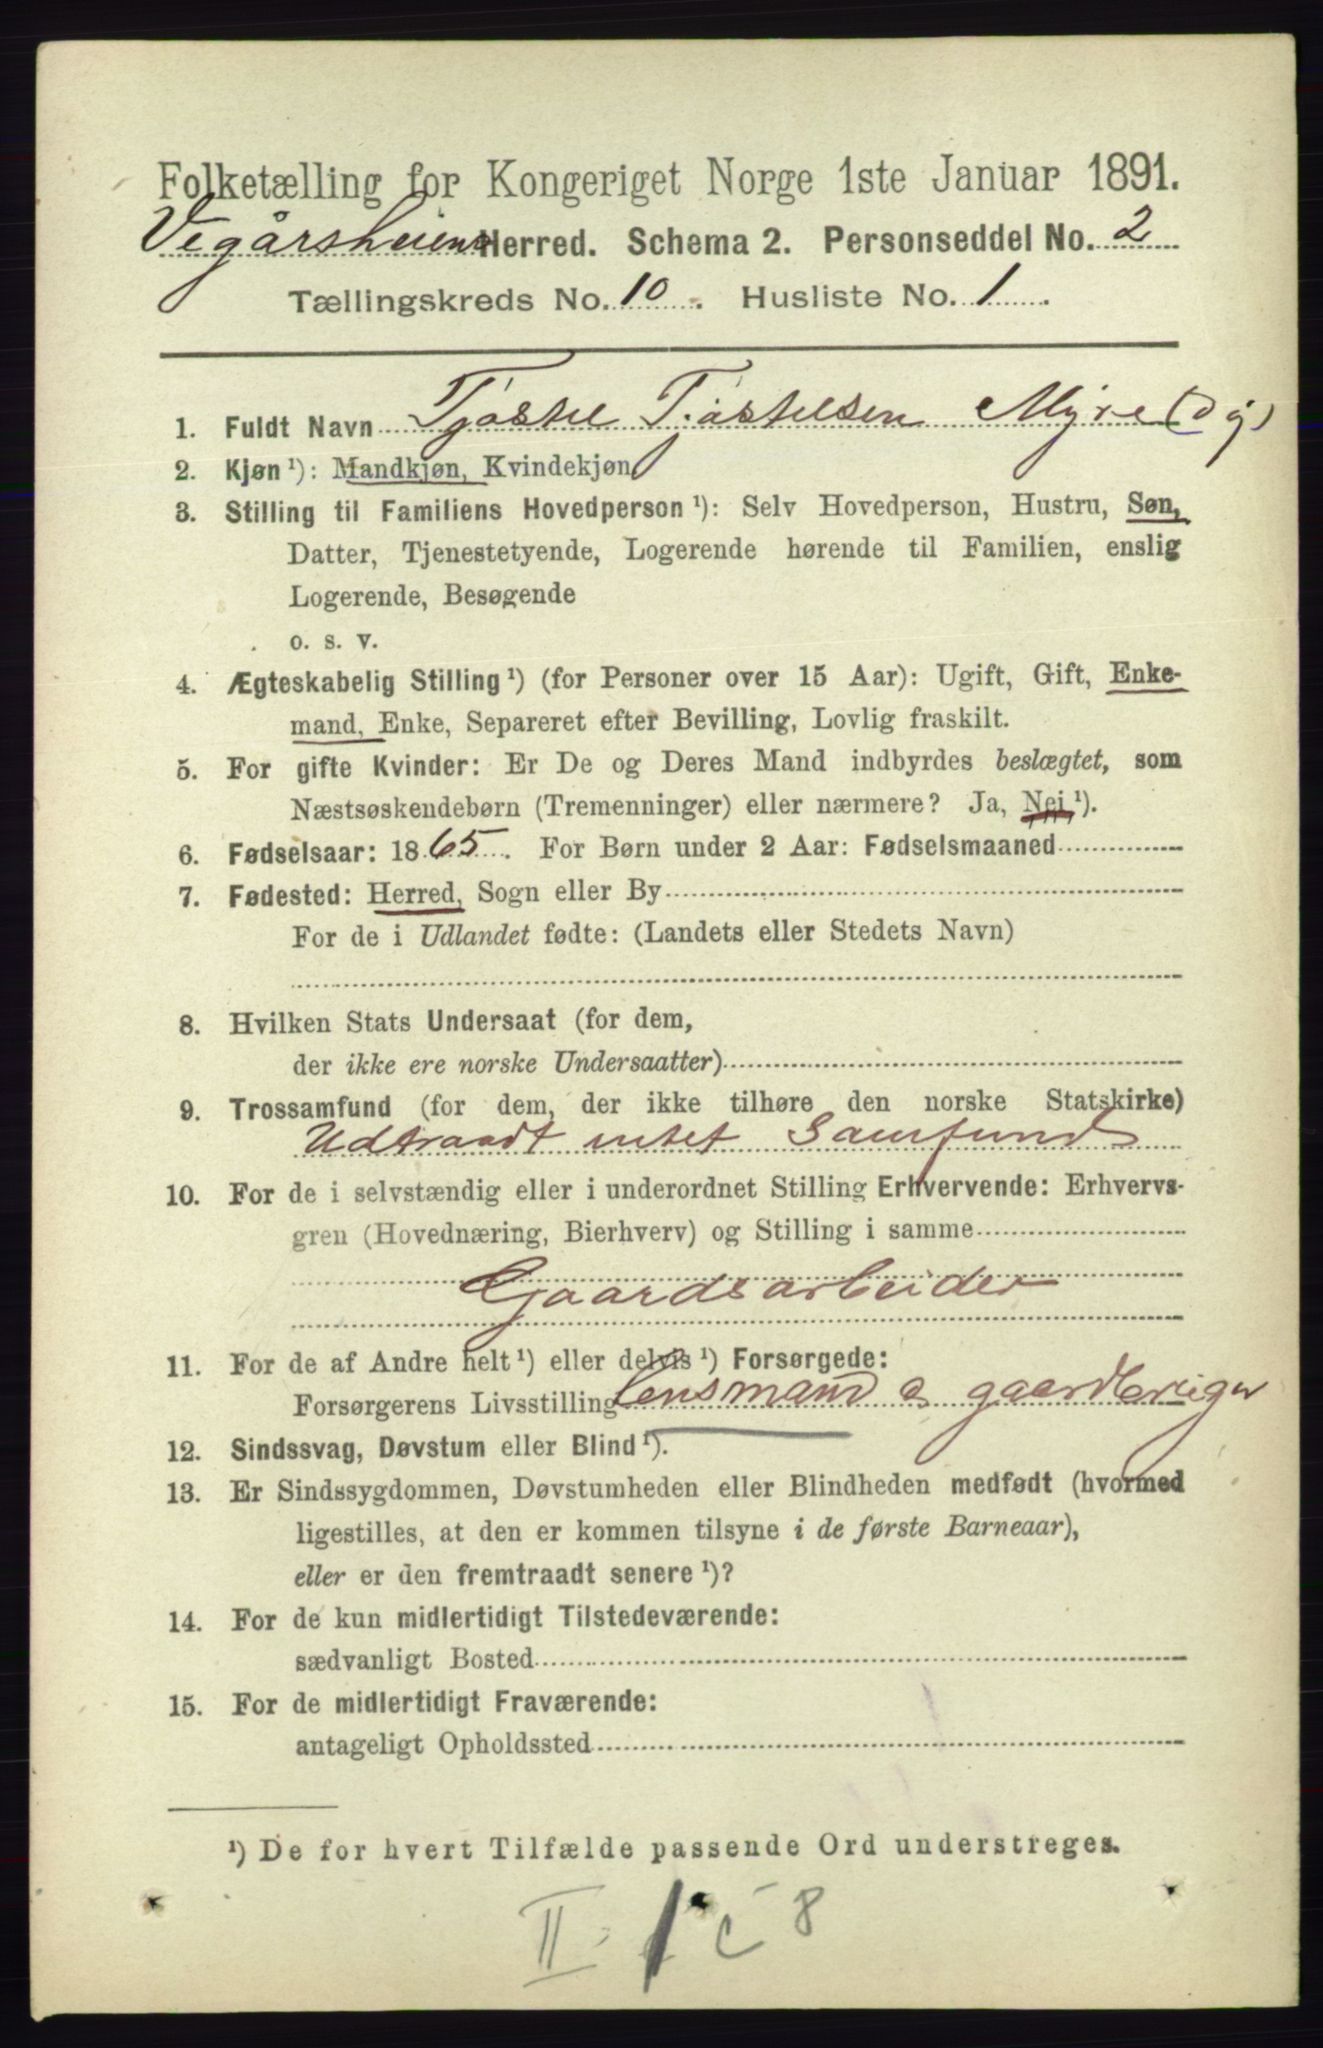 Folketælling for Kongeriget Norge 1ste Januar 1891.
Vegårsheiens Herred. Schema 2. Personseddel No. 2
Tællingskreds No. 10. Husliste No. 1.
1. Fuldt Navn Tjøstel Tjøstelsen Myre
2. Kjøn ¹): Mandkjøn, Kvindekjøn
3. Stilling til Familiens Hovedperson ¹): Selv Hovedperson, Hustru, Søn,
Datter, Tjenestetyende, Logerende hørende til Familien, enslig
Logerende, Besøgende
o. s. v.
4. Ægteskabelig Stilling ¹) (for Personer over 15 Aar): Ugift, Gift, Enke-
mand, Enke, Separeret efter Bevilling, Lovlig fraskilt.
5. For gifte Kvinder: Er De og Deres Mand indbyrdes beslægtet, som
Næstsøskendebørn (Tremenninger) eller nærmere? Ja, Nei ¹).
6. Fødselsaar: 1865. For Børn under 2 Aar: Fødselsmaaned
7. Fødested: Herred, Sogn eller By
For de i Udlandet fødte: (Landets eller Stedets Navn)
8. Hvilken Stats Undersaat (for dem,
der ikke ere norske Undersaatter)
9. Trossamfund (for dem, der ikke tilhøre den norske Statskirke)
Udtraadt intet Samfund
10. For de i selvstændig eller i underordnet Stilling Erhvervende: Erhvervs-
gren (Hovednæring, Bierhverv) og Stilling i samme
Gaardsarbeider
11. For de af Andre helt ¹) eller delvis ¹) Forsørgede:
Forsørgerens Livsstilling Lensmand og gaardbruger
12. Sindssvag, Døvstum eller Blind ¹).
13. Er Sindssygdommen, Døvstumheden eller Blindheden medfødt (hvormed
ligestilles, at den er kommen tilsyne i de første Barneaar),
eller er den fremtraadt senere ¹)?
14. For de kun midlertidigt Tilstedeværende:
sædvanligt Bosted
15. For de midlertidigt Fraværende:
antageligt Opholdssted
¹) De for hvert Tilfælde passende Ord understreges.
II